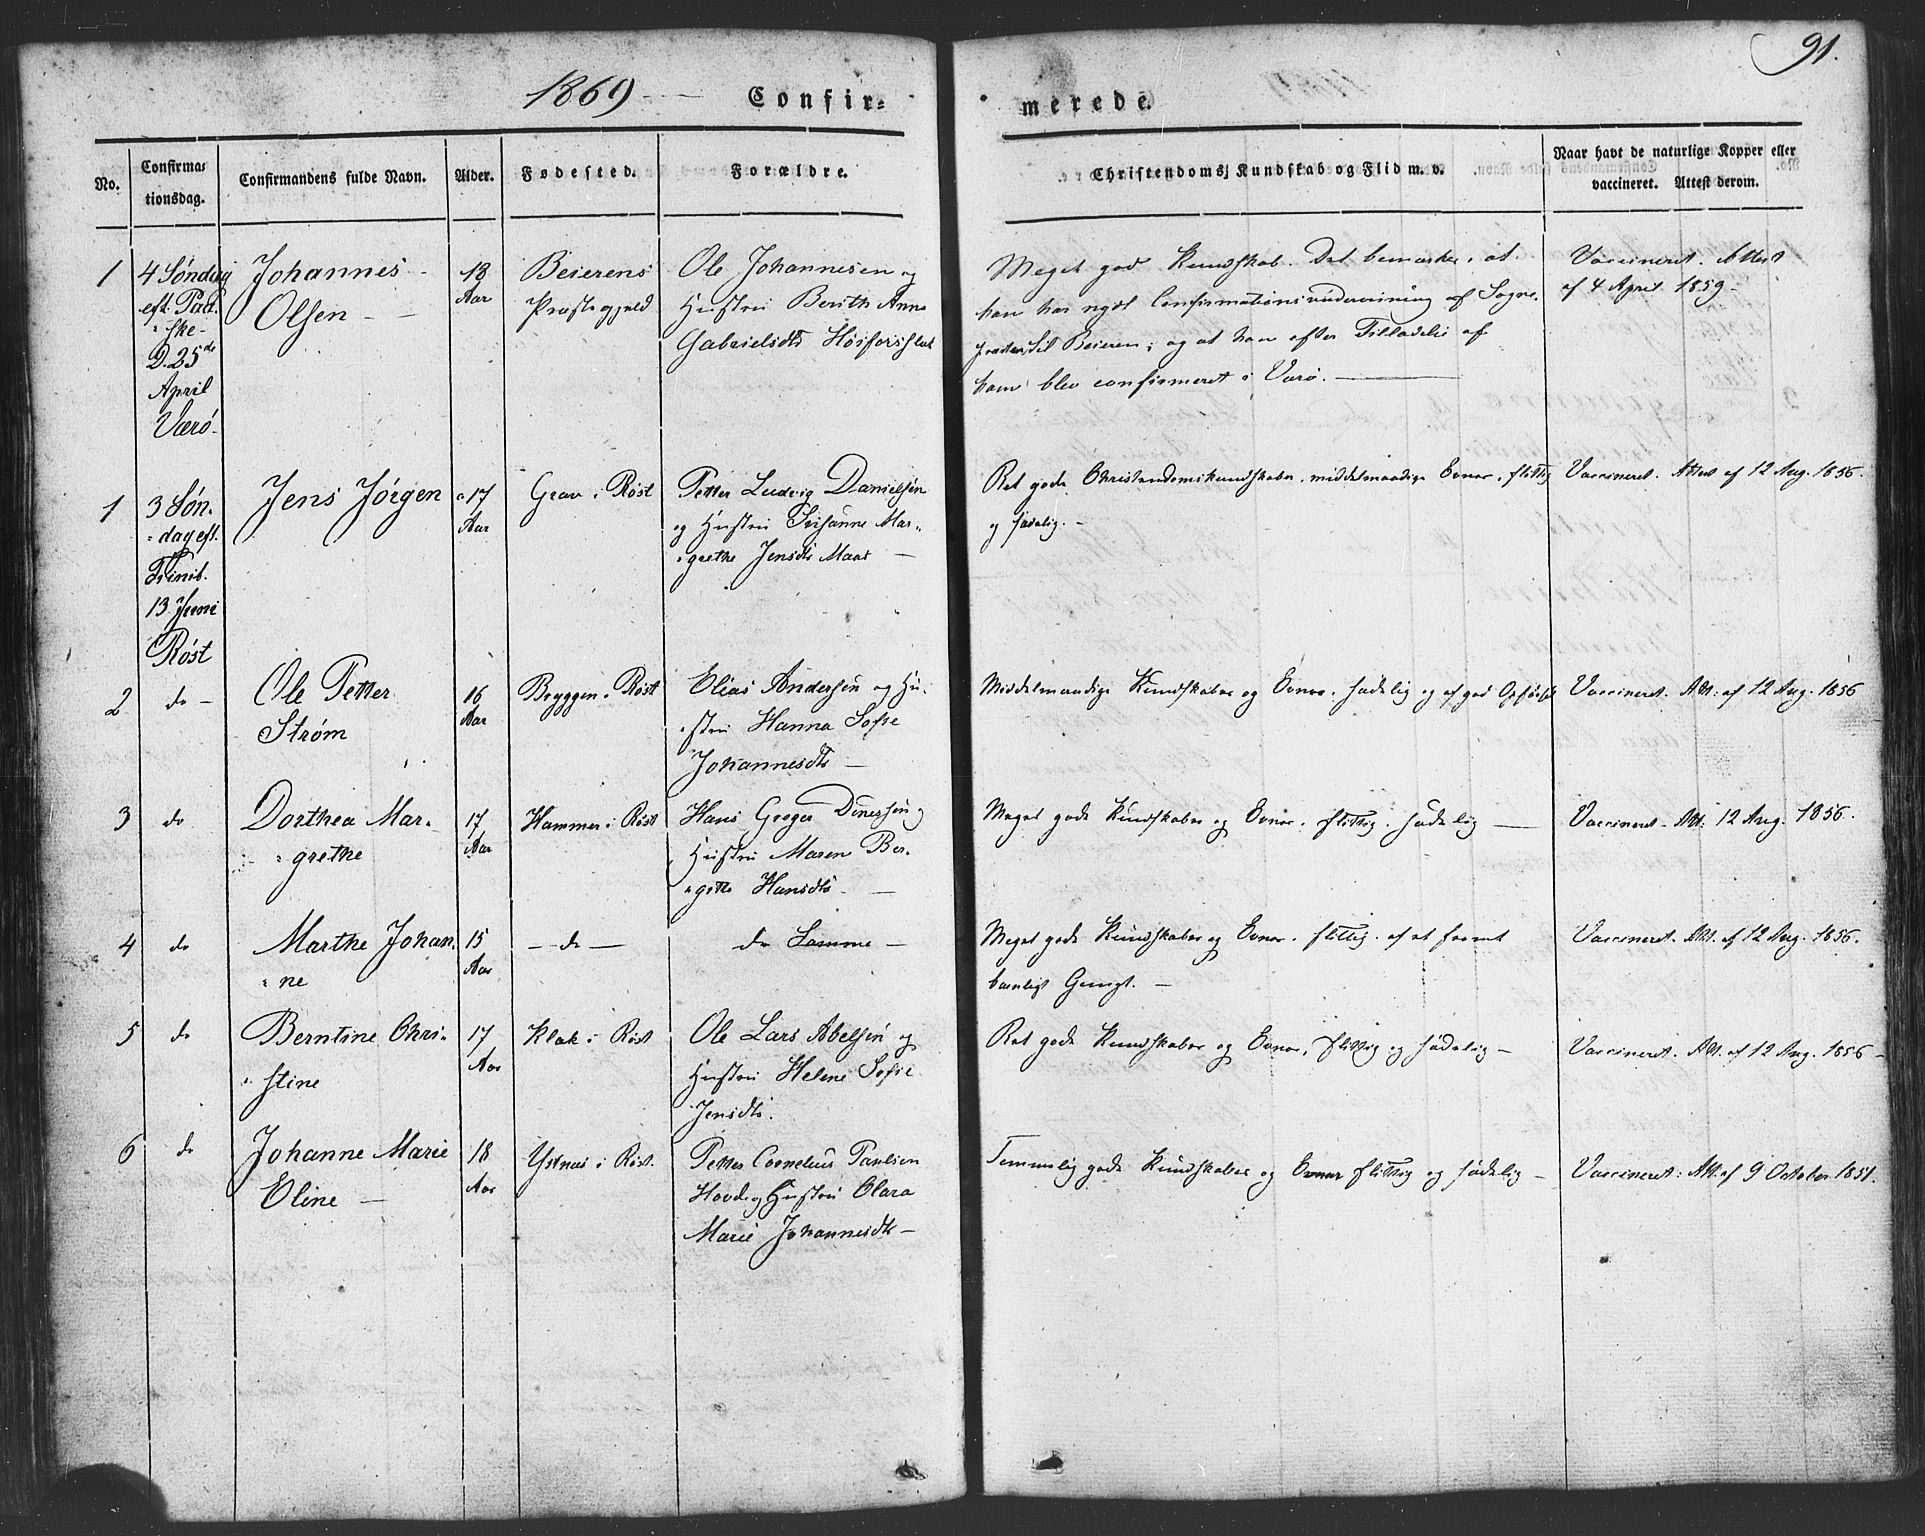 1869 — Confir-
merede.
91.
No.
Confirma-
tionsdag.
Confirmandens fulde Navn.
Alder.
Fødested.
Forældre.
Christendoms, Kundskab og Flid m. v.
Naar havt de naturlige Kopper eller
vaccineret. Attest derom.
1
4 Søndag
eft. Paa-
ske-
D. 25de
April
Værø.
Johannes
Olsen —
18
Aar
Beierens
Præstegjeld
Ole Johannesen og
Hustru Berith Anna
Gabrielsdtr
Meget god Kundskab. Det bemærkes, at
han har nydt Confirmationsundervisning af Sogne-
præsten til Beieren, og at han efter Tilladelse af
ham blev confirmeret i Værø. —
Vaccineret. Attest
af 4 April 1859 —
1
3 Søn-
dag eft.
Trinit.
13 Juni
Røst
Jens Jørgen
17
Aar
Grav i Røst
Petter Ludvig Danielsen
og Hustru Susanne Mar-
grethe Jensdtr Maas —
Ret gode Christendomskundskaber, middelmaadige Evner, flittig
og sædelig. —
Vaccineret. Attest af 12 Aug. 1856.
2
do —
Ole Petter
Strøm
16
Aar
Bryggen i Røst
Elias Andersen og Hu-
stru Hanna Sofie
Johannesdtr —
Middelmaadige Kundskaber og Evner, sædelig og af god Opførsel
Vaccineret. Att: af 12 Aug. 1856
3
do
Dorthea Mar-
grethe
17
Aar
Hammer i Røst
Hans Greger Dinessen og
Hustru Maren Ber-
gitte Hansdtr. —
Meget gode Kundskaber og Evner, flittig, sædelig —
Vaccineret. Att: 12 Aug. 1856.
4
do
Marthe Johan-
ne
15
Aar
— do —
do Samme —
Meget gode Kundskaber og Evner, flittig, af et fromt
barnligt Gemyt. —
Vaccineret. Att. af 12 Aug. 1856.
5
do
Berntine Chri-
stine
17
Aar
Klak i Røst
Ole Lars Abelsen og
Hustru Helene Sofie
Jensdtr.
Ret gode Kundskaber og Evner, flittig og sædelig —
Vaccineret. Att. af 12 Aug. 1856 —
6
do
Johanne Marie
Eline —
18
Aar
Ystnæs i Røst.
Petter Cornelius Paulsen
Hovde og Hustru Clara
Marie Johannesdtr —
Temmelig gode Kundskaber og Evner flittig og sædelig —
Vaccineret: Att. af 9 October 1851.